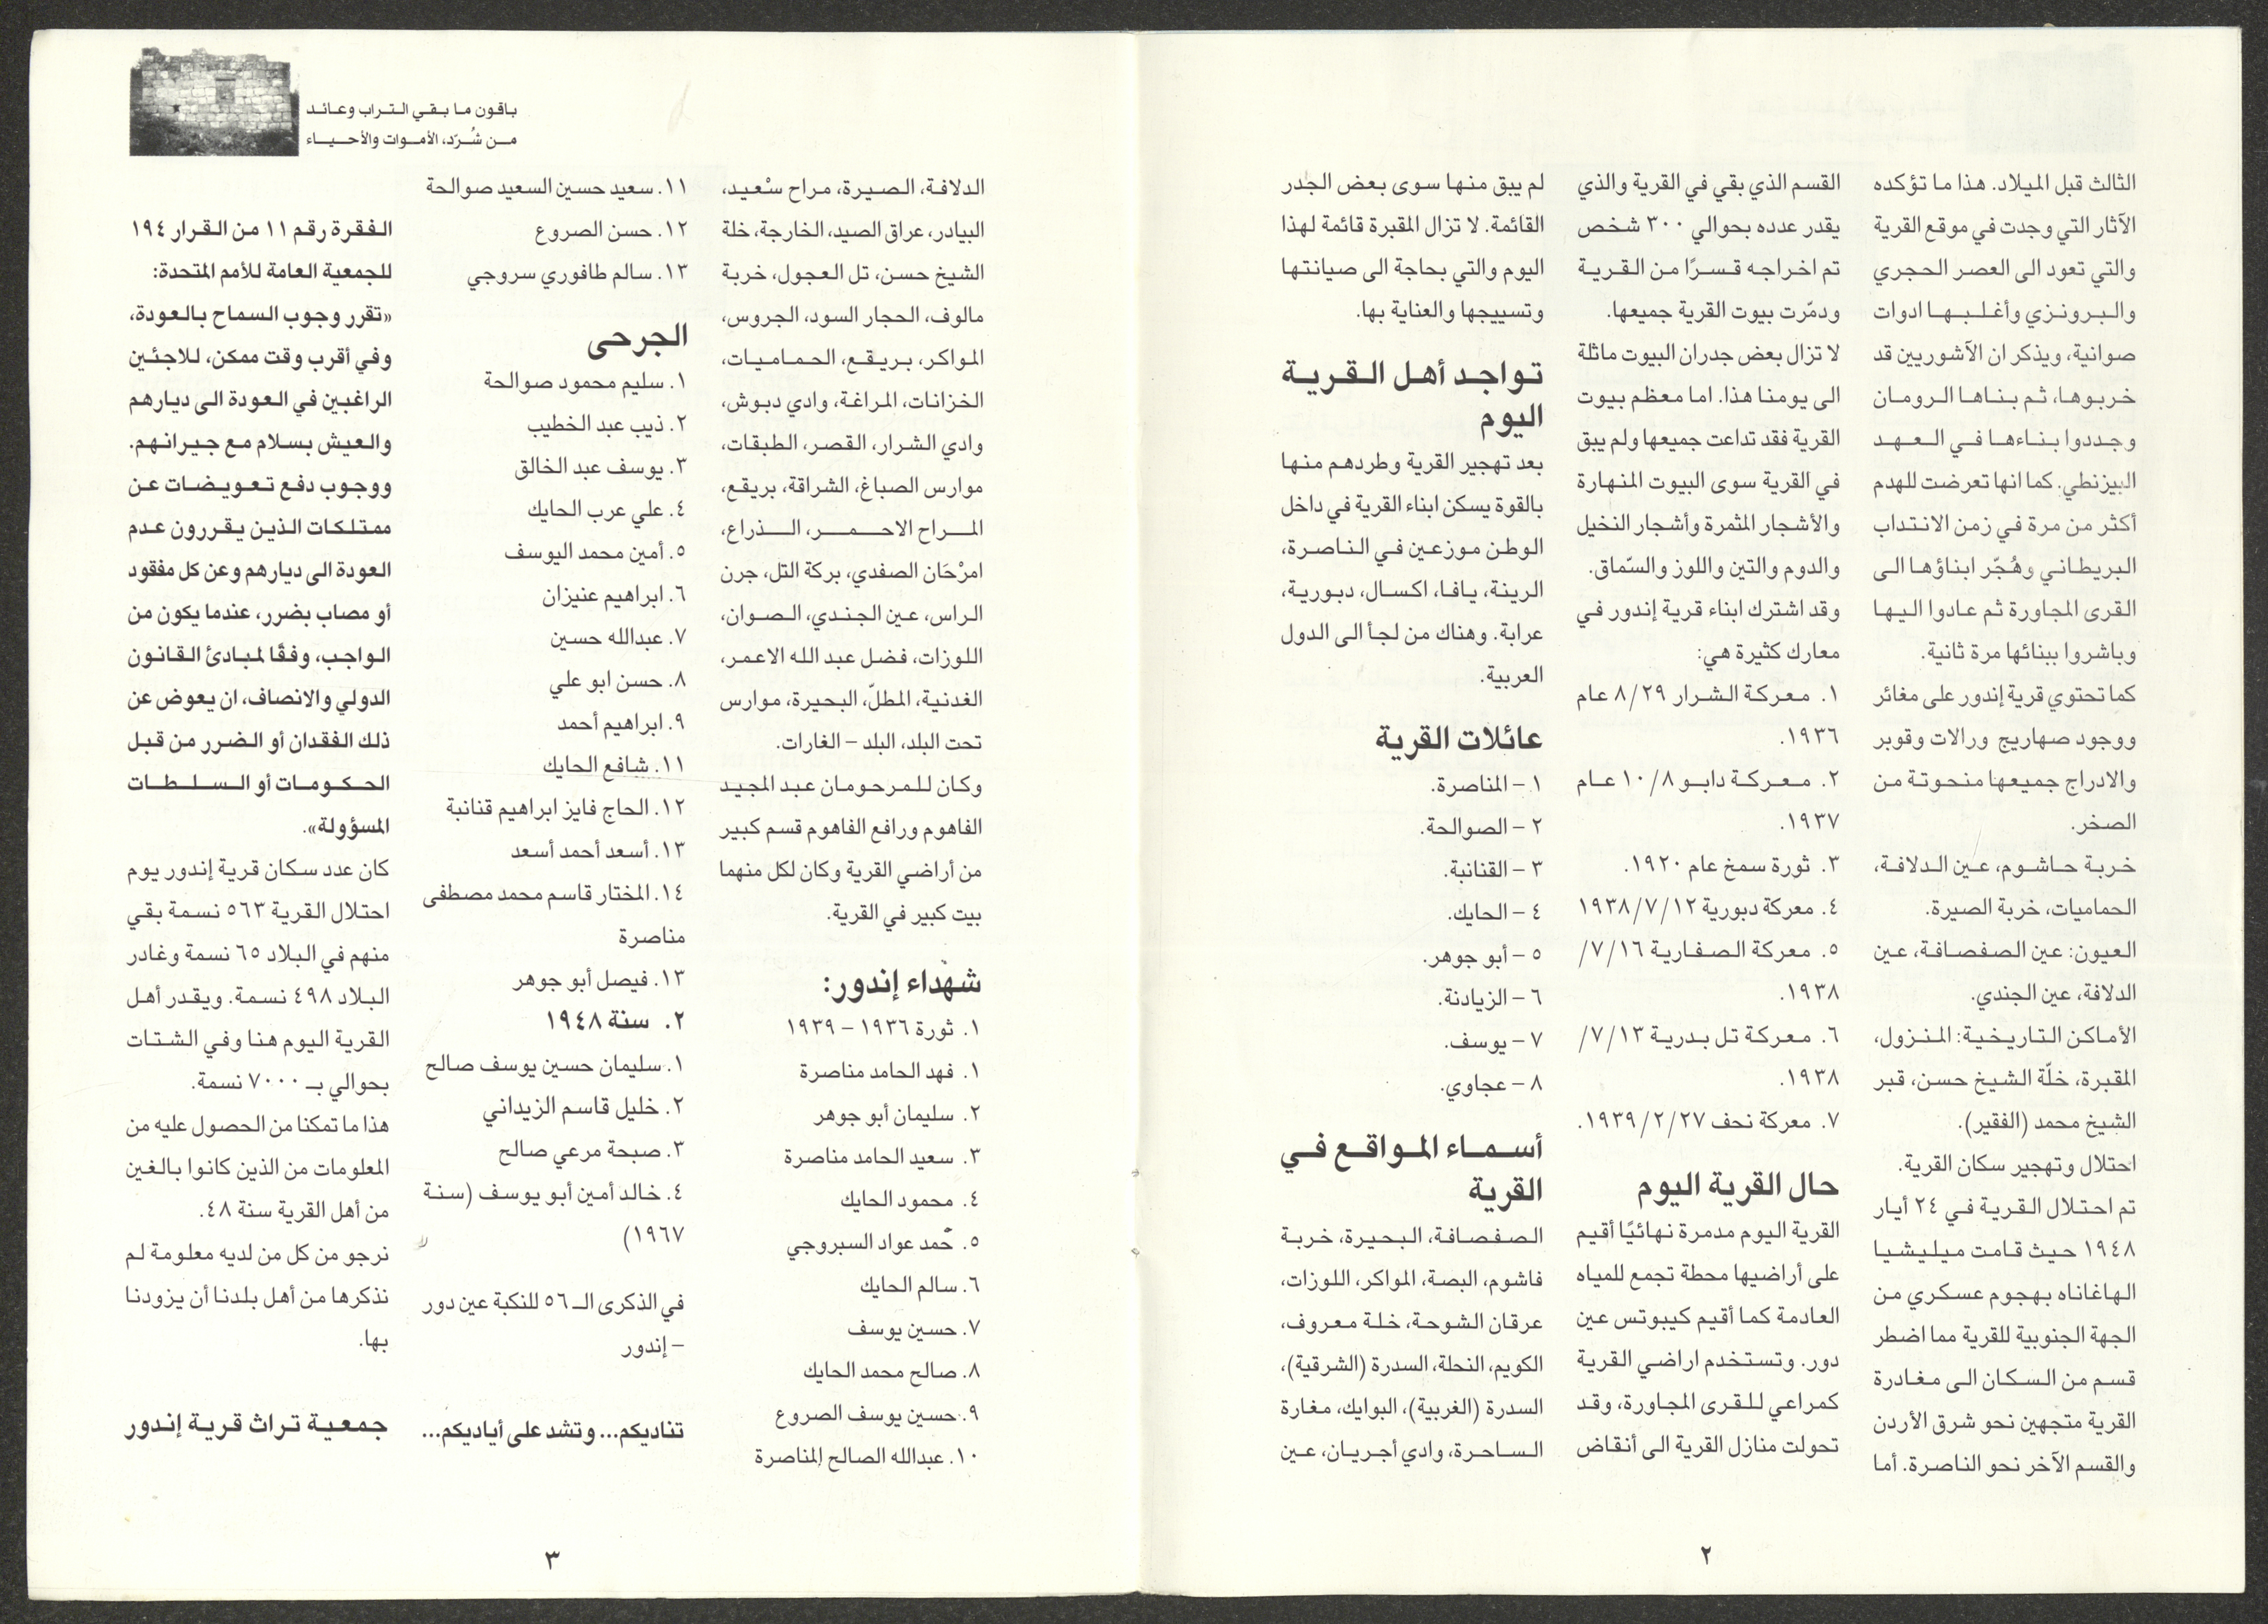 الثالث قبل الميلاد. هذا ما تؤكده
الآثار التي وجدت في موقع القرية
والتي تعود الى العصر الحجري
والبرونزي وأغلبها ادوات
صوانية، ويذكر ان الآشوريين قد
خربوها، ثم بناها الرومان
وجددوا بناءها في العهد
البيزنطي. كما انها تعرضت للهدم
أكثر من مرة في زمن الانتداب
البريطاني وهُجّر ابناؤها الى
القرى المجاورة ثم عادوا اليها
وباشروا ببنائها مرة ثانية.
كما تحتوي قرية إندور على مغائر
ووجود صهاريج ورالات وقوبر
والادراج جميعها منحوتة من
الصخر.
خربة حاشوم، عين الدلافة،
الحماميات، خربة الصيرة.
العيون: عين الصفصافة، عين
الدلافة، عين الجندي.
الأماكن التاريخية: المنزول،
المقبرة، خلّة الشيخ حسن، قبر
الشيخ محمد (الفقير).
احتلال وتهجير سكان القرية.
تم احتلال القرية في ٢٤ أيار
١٩٤٨ حيث قامت ميليشيا
الهاغاناه بهجوم عسكري من
الجهة الجنوبية للقرية مما اضطر
قسم من السكان الى مغادرة
القرية متجهين نحو شرق الأردن
والقسم الآخر نحو الناصرة. أما
القسم الذي بقي في القرية والذي
يقدر عدده بحوالي ٣٠٠ شخص
تم اخراجه قسرًا من القرية
ودمّرت بيوت القرية جميعها.
لا تزال بعض جدران البيوت ماثلة
الى يومنا هذا. اما معظم بيوت
القرية فقد تداعت جميعها ولم يبق
في القرية سوى البيوت المنهارة
والأشجار المثمرة وأشجار النخيل
والدوم والتين واللوز والسّماق.
وقد اشترك ابناء قرية إندور في
معارك كثيرة هي:
١. معركة الشرار ٨/٢٩ عام
١٩٣٦.
٢. معركة دابو ١٠/٨ عام
١٩٣٧.
٣. ثورة سمخ عام ١٩٢٠.
٤. معركة دبورية ١٩٣٨/٧/١٢
٥. معركة الصفارية ٧/١٦/
١٩٣٨.
٦. معركة تل بدرية ٧/١٣/
١٩٣٨.
٧. معركة نحف ١٩٣٩/٢/٢٧.
حال القرية اليوم
القرية اليوم مدمرة نهائيًا أقيم
على أراضيها محطة تجمع للمياه
العادمة كما أقيم كيبوتس عين
دور. وتستخدم اراضي القرية
كمراعي للقرى المجاورة، وقد
تحولت منازل القرية الى أنقاض
لم يبق منها سوى بعض الجدر
القائمة. لا تزال المقبرة قائمة لهذا
اليوم والتي بحاجة الى صيانتها
وتسييجها والعناية بها.
تواجد أهل القرية
اليوم
بعد تهجير القرية وطردهم منها
بالقوة يسكن ابناء القرية في داخل
الوطن موزعين في الناصرة،
الرينة، يافا، اكسال، دبورية،
عرابة. وهناك من لجأ الى الدول
العربية.
عائلات القرية
١ – المناصرة.
٢ – الصوالحة.
٣ – القنانبة.
٤ – الحايك.
٥ – أبو جوهر.
٦ – الزيادنة.
٧ – يوسف.
٨ – عجاوي.
أسماء المواقع في
القرية
الصفصافة، البحيرة، خربة
فاشوم، البصة، المواكر، اللوزات،
عرقان الشوحة، خلة معروف،
الكويم، النحلة، السدرة (الشرقية)،
السدرة (الغربية)، البوايك، مغارة
الساحرة، وادي أجريان، عين
٢
باقون ما بقي التراب وعائد
من شُرّد، الأموات والأحياء
الدلافة، الصيرة، مراح سْعيد،
البيادر، عراق الصيد، الخارجة، خلة
الشيخ حسن، تل العجول، خربة
مالوف، الحجار السود، الجروس،
المواكر، بريقع، الحماميات،
الخزانات، المراغة، وادي دبوش،
وادي الشرار، القصر، الطبقات،
موارس الصباغ، الشراقة، بريقع،
المراح الاحمر، الذراع،
امرْحَان الصفدي، بركة التل، جرن
الراس، عين الجندي، الصوان،
اللوزات، فضل عبد الله الاعمر،
الغدنية، المطلّ، البحيرة، موارس
تحت البلد، البلد – الغارات.
وكان للمرحومان عبد المجيد
الفاهوم ورافع الفاهوم قسم كبير
من أراضي القرية وكان لكل منهما
بيت كبير في القرية.
شهداء إندور:
١. ثورة ١٩٣٦ – ١٩٣٩
١. فهد الحامد مناصرة
٢. سليمان أبو جوهر
٣. سعيد الحامد مناصرة
٤. محمود الحايك
٥. حّمد عواد السبروجي
٦. سالم الحايك
٧. حسين يوسف
٨. صالح محمد الحايك
٩. حسين يوسف الصروع
١٠. عبدالله الصالح المناصرة
١١. سعيد حسين السعيد صوالحة
١٢. حسن الصروع
١٣. سالم طافوري سروجي
الجرحى
١. سليم محمود صوالحة
٢. ذيب عبد الخطيب
٣. يوسف عبد الخالق
٤. علي عرب الحايك
٥. أمين محمد اليوسف
٦. ابراهيم عنيزان
٧. عبدالله حسين
٨. حسن ابو علي
٩. ابراهيم أحمد
١١. شافع الحايك
١٢. الحاج فايز ابراهيم قنانبة
١٣. أسعد أحمد أسعد
١٤. المختار قاسم محمد مصطفى
مناصرة
١٣. فيصل أبو جوهر
٢. سنة ١٩٤٨
١. سليمان حسين يوسف صالح
٢. خليل قاسم الزيداني
٣. صبحة مرعي صالح
٤. خالد أمين أبو يوسف (سنة
١٩٦٧)
في الذكرى الـ ٥٦ للنكبة عين دور
– إندور
تناديكم... وتشد على أياديكم...
الفقرة رقم ١١ من القرار ١٩٤
للجمعية العامة للأمم المتحدة:
«تقرر وجوب السماح بالعودة،
وفي أقرب وقت ممكن، للاجئين
الراغبين في العودة الى ديارهم
والعيش بسلام مع جيرانهم.
ووجوب دفع تعويضات عن
ممتلكات الذين يقررون عدم
العودة الى ديارهم وعن كل مفقود
أو مصاب بضرر، عندما يكون من
الواجب، وفقًا لمبادئ القانون
الدولي والانصاف، ان يعوض عن
ذلك الفقدان أو الضرر من قبل
الحكومات أو السلطات
المسؤولة».
كان عدد سكان قرية إندور يوم
احتلال القرية ٥٦٣ نسمة بقي
منهم في البلاد ٦٥ نسمة وغادر
البلاد ٤٩٨ نسمة. ويقدر أهل
القرية اليوم هنا وفي الشتات
بحوالي بـ ٧٠٠٠ نسمة.
هذا ما تمكنا من الحصول عليه من
المعلومات من الذين كانوا بالغين
من أهل القرية سنة ٤٨.
نرجو من كل من لديه معلومة لم
نذكرها من أهل بلدنا أن يزودنا
بها.
جمعية تراث قرية إندور
٣